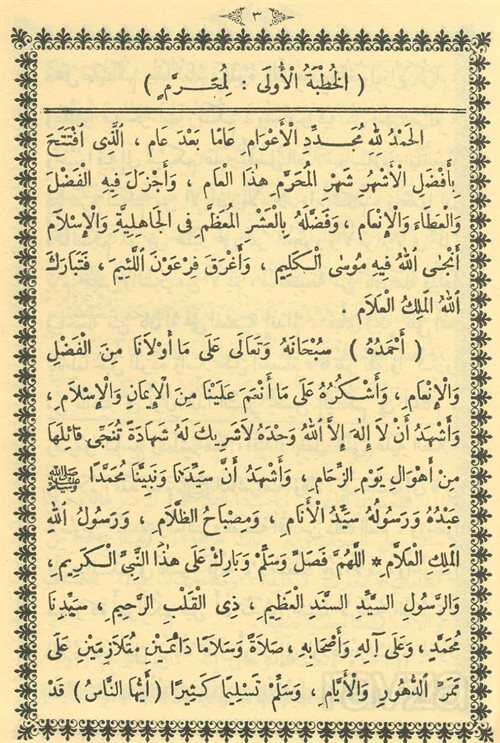 ٣
( الخُطْبَةُ الْأُولَى : لِمُحَرَّمٍ )
الحَمْدُ لِلهِ مُجَدِّدِ الْأَعْوَامِ عَامًا بَعْدَ عَامٍ ، الَّذِى افْتَتَحَ
بِأَفْضَلِ الْأَشْهُرِ شَهْرِ الْمُحَرَّمِ هٰذَا الْعَامَ ، وَأَجْزَلَ فِيهِ الْفَضْلَ
وَالْعَطَاءَ وَالْإِنْعَامَ ، وَفَضَّلَهُ بِالْعَشْرِ الْمُعَظَّمِ فِى الجَاهِلِيَّةِ وَالْإِسْلَامِ
أَنْجَى اللهُ فِيهِ مُوسَى الْكَلِيمَ ، وَأَغْرَقَ فِرْعَوْنَ اللَّئِيمَ ، فَتَبَارَكَ
اللهُ الْمَلِكُ الْعَلَّامُ .
( أَحْمَدُهُ ) سُبْحَانَهُ وَتَعَالَى عَلَى مَا أَوْلَانَا مِنَ الْفَضْلِ
وَالْإِنْعَامِ ، وَأَشْكُرُهُ عَلَى مَا أَنْعَمَ عَلَيْنَا مِنَ الْإِيمَانِ وَالْإِسْلَامِ ،
وَأَشْهَدُ أَنْ لَا إِلٰهَ إِلَّا اللهُ وَحْدَهُ لَاشَرِيكَ لَهُ شَهَادَةً تُنَجِّى قَائِلَهَا
مِنْ أَهْوَالِ يَوْمِ الزِّحَامِ ، وَأَشْهَدُ أَنَّ سَيِّدَنَا وَنَبِيَّنَا مُحَمَّدًا ﷺ
عَبْدُهُ وَرَسُولُهُ سَيِّدُ الْأَنَامِ ، وَمِصْبَاحُ الظَّلَامِ ، وَرَسُولُ اللهِ
الْمَلِكِ الْعَلَّامِ * اللّٰهُمَّ فَصَلِّ وَسَلِّمْ وَبَارِكْ عَلَى هٰذَا النَّبِىِّ الْكَرِيمِ ،
وَالرَّسُولِ السَّيِّدِ السَّنَدِ الْعَظِيمِ ، ذِى الْقَلْبِ الرَّحِيمِ ، سَيِّدِنَا
مُحَمَّدٍ ، وَعَلَى آلِهِ وَأَصْحَابِهِ ، صَلَاةً وَسَلَامًا دَائِمَيْنِ مُتَلَازِمَيْنِ عَلَى
مَمَرِّ الدُّهُورِ وَالْأَيَّامِ ، وَسَلِّمْ تَسْلِيمًا كَثِيرًا ( أَيُّهَا النَّاسُ ) قَدْ